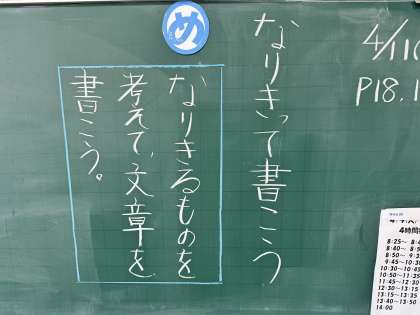 4/11(
P18.1
なりきって書こう
め
なりきるものを
考えて、文章を
書こう。
4時間
8:25～ 8:4
8:40～ 8:5
8:50～ 9:3
9:45～10:30
10:30～10:45
10:50～11:35
11:45～12:30
12:30～13:15
13:15～13:15
13:40～13:50
14:00